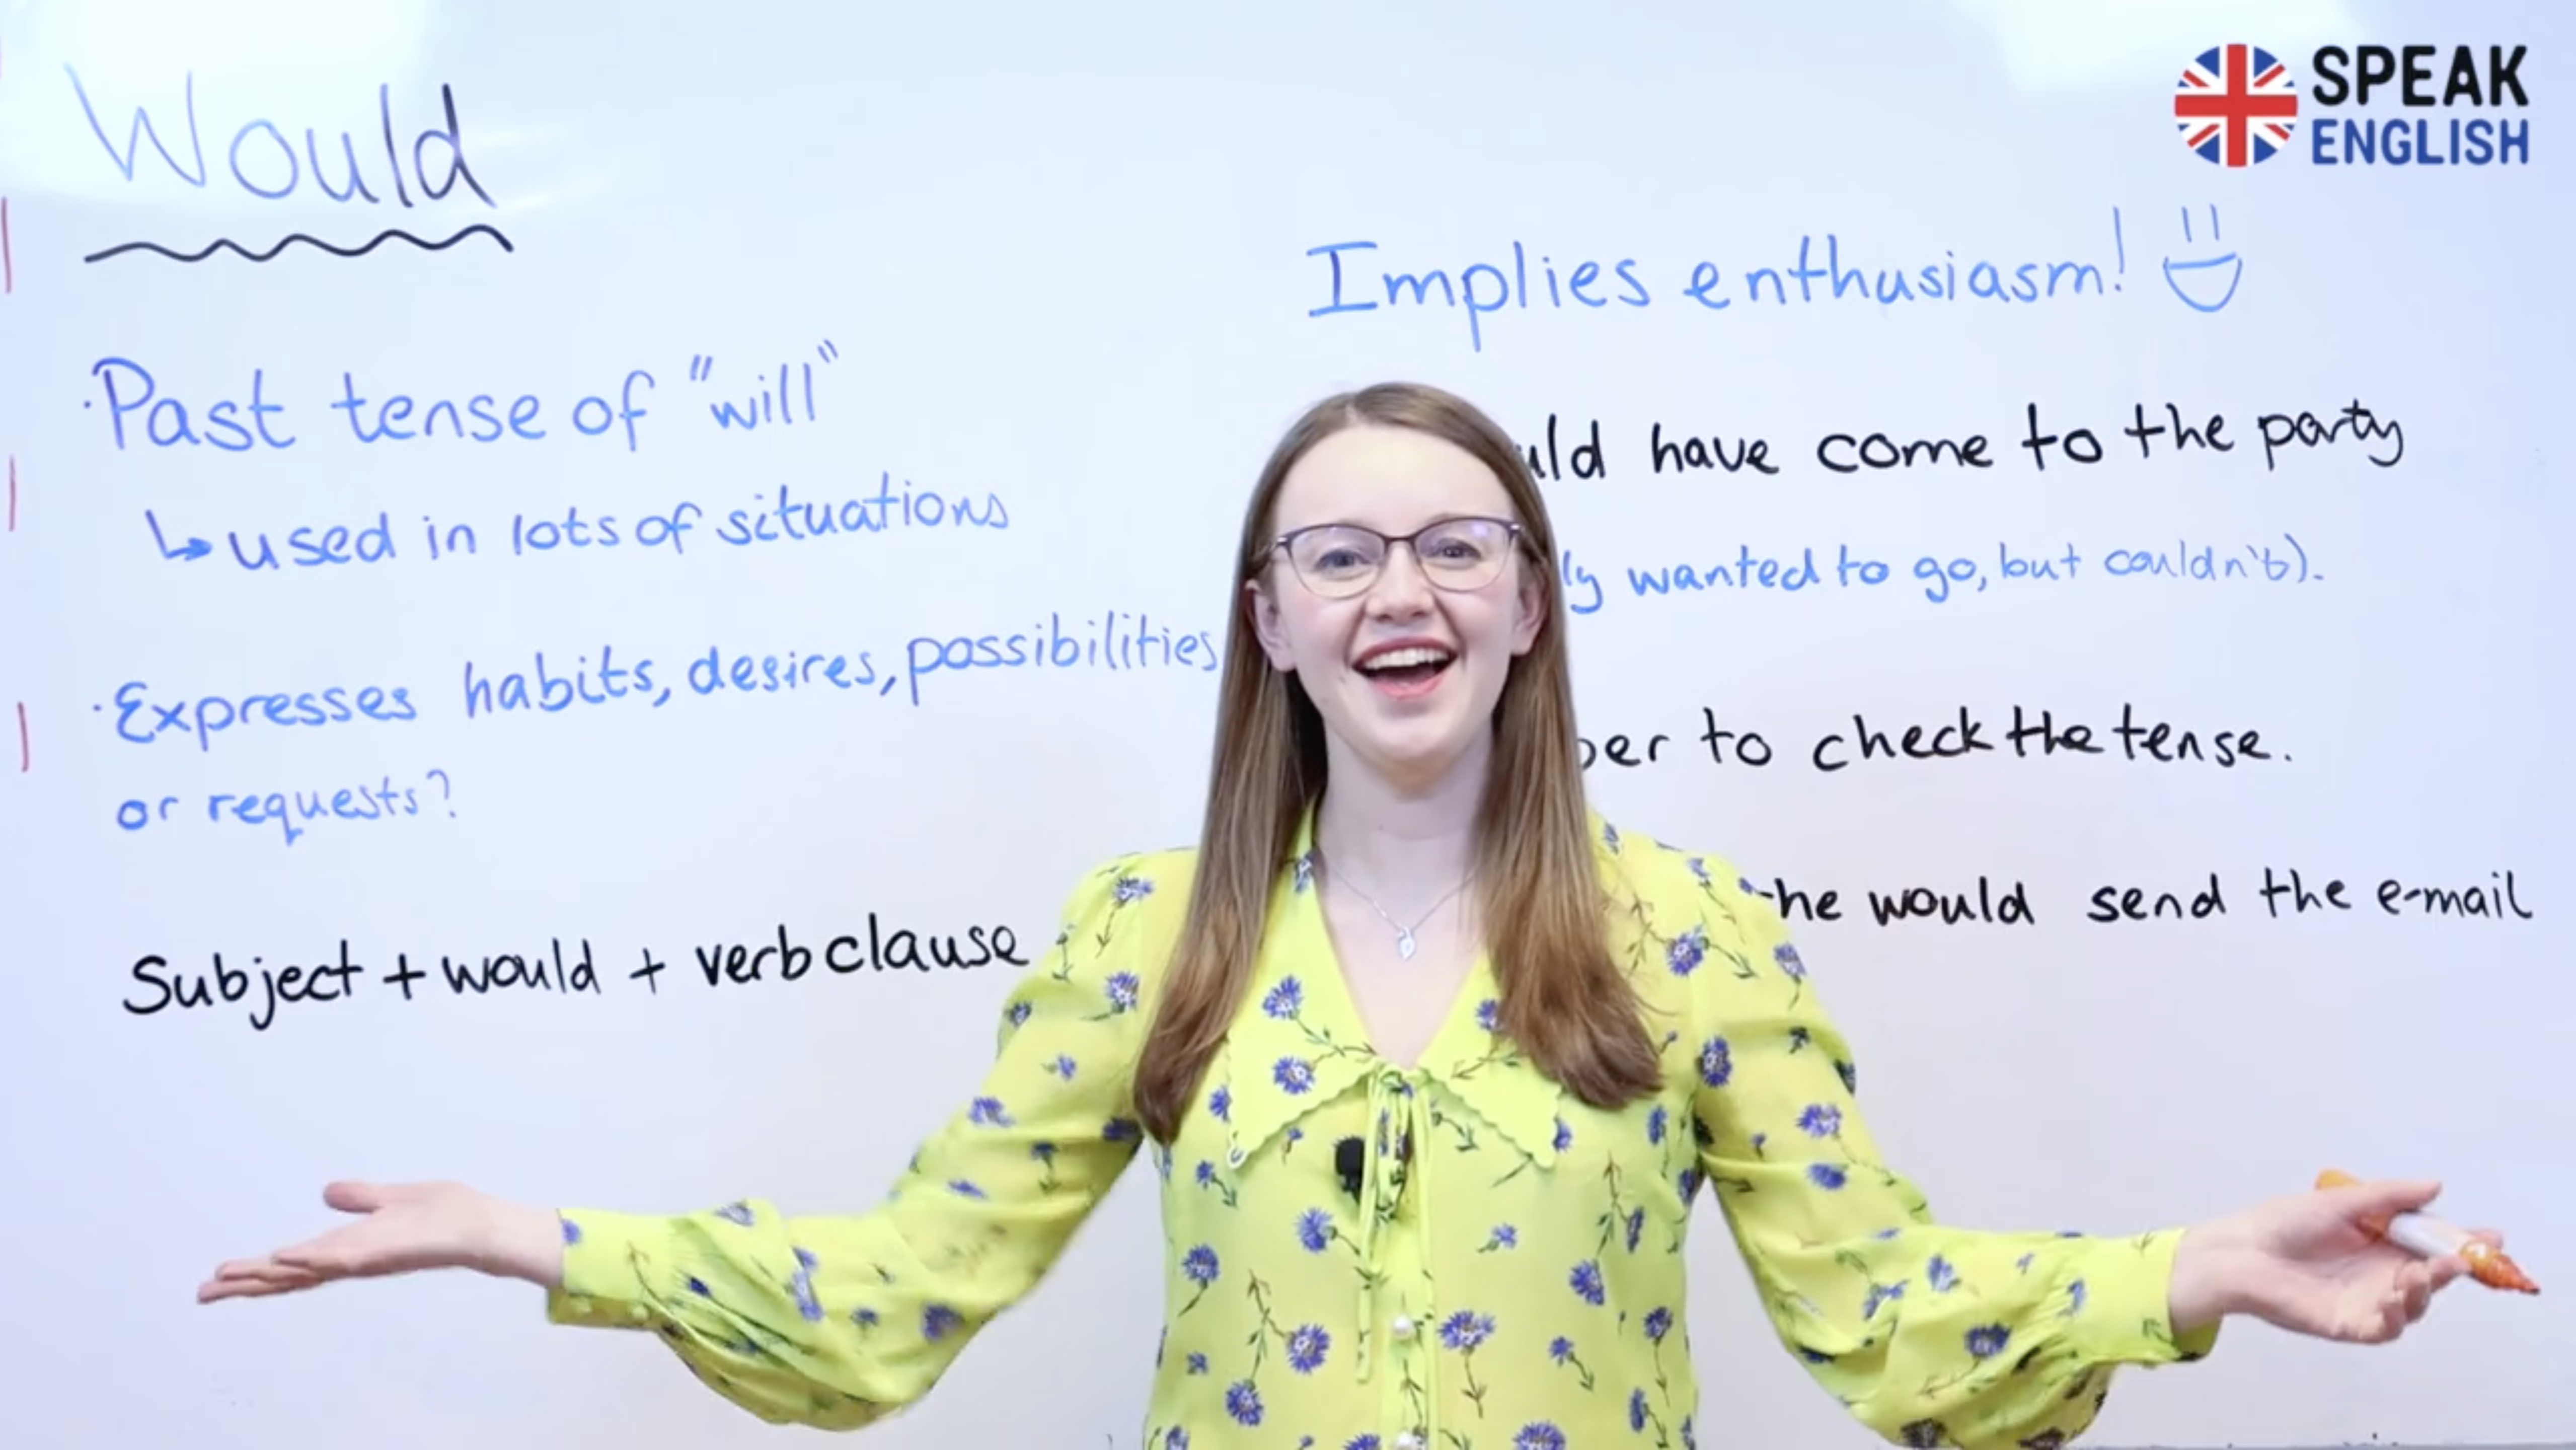 Would
· Past tense of "will"
↳ used in lots of situations
· Expresses habits, desires, possibilities
or requests?
Subject + would + verb clause
SPEAK
ENGLISH
Implies enthusiasm!
have come to the party
wanted to go, but couldn't).
to check the tense.
he would send the e-mail